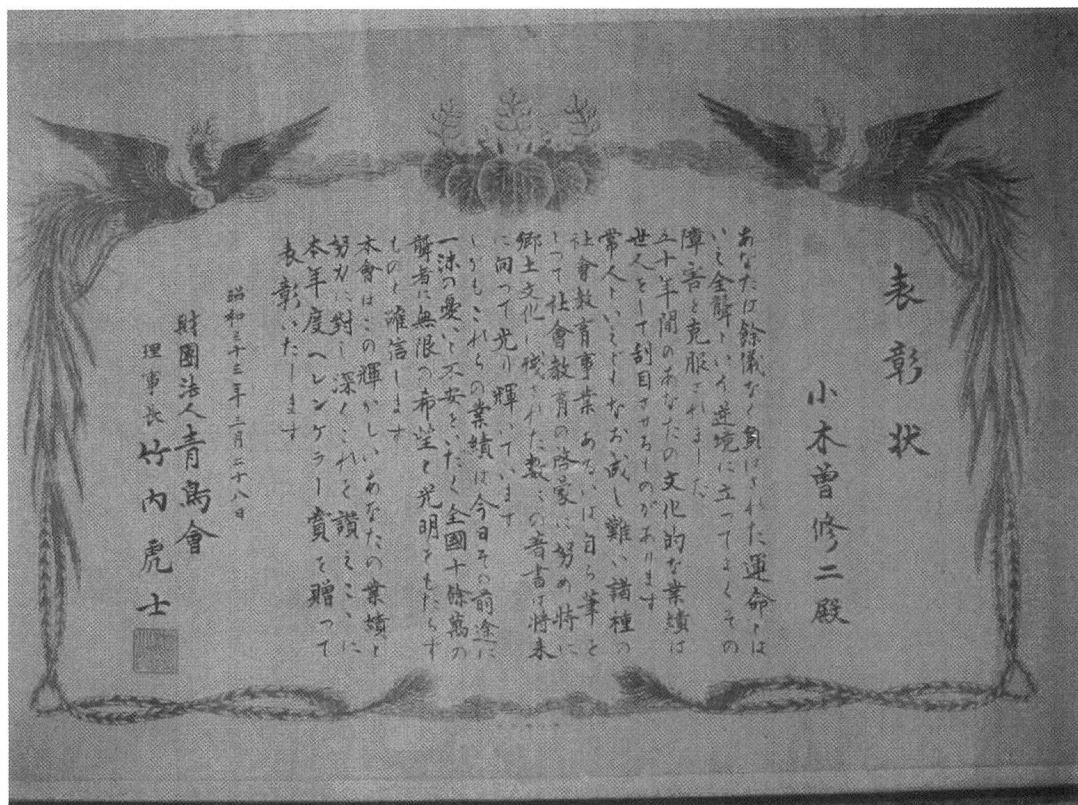 表彰状
小木曽修二殿
あなたは餘儀なく負はされた運命とは
いえ全聾という逆境に立ってよくその
障害を克服されました
五十年間のあなたの文化的な業績は
世人をして刮目させるものがあります
常人といえどもなお成し難い諸種の
社會教育事業あるいは自ら筆を
とって社會教育の啓蒙に努め特に
郷土文化に残された数々の著書は将来
に向って光り輝いています
しかもこれらの業績は今日その前途に
一沫の憂いと不安をいだく全國十餘萬の
聾者に無限の希望と光明をもたらす
ものと確信します
本會はこの輝かしいあなたの業績と
努力に對し深くこれを讃えここに
本年度ヘレンケラー賞を贈って
表彰いたします
昭和三十三年三月二十八日
財團法人青鳥會
理事長 竹内虎士